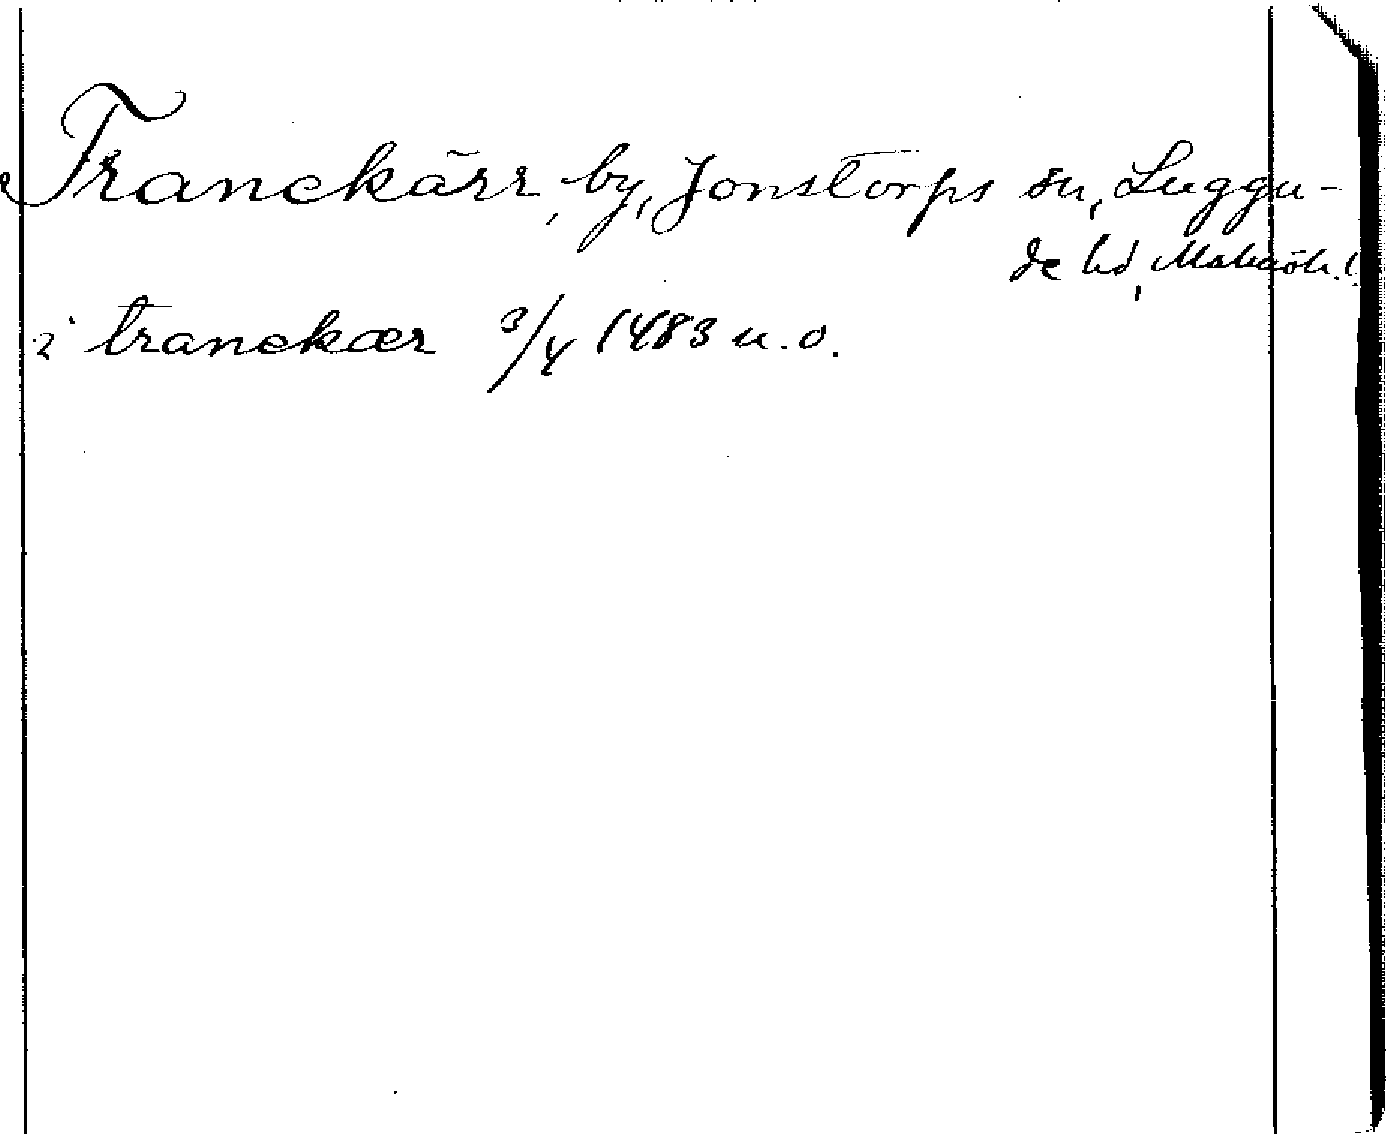 Tranekärr, by, Jonstorps sn, Luggu-
de hd, Malmöh. l.
i tranekær 3/4 1483 u.o.